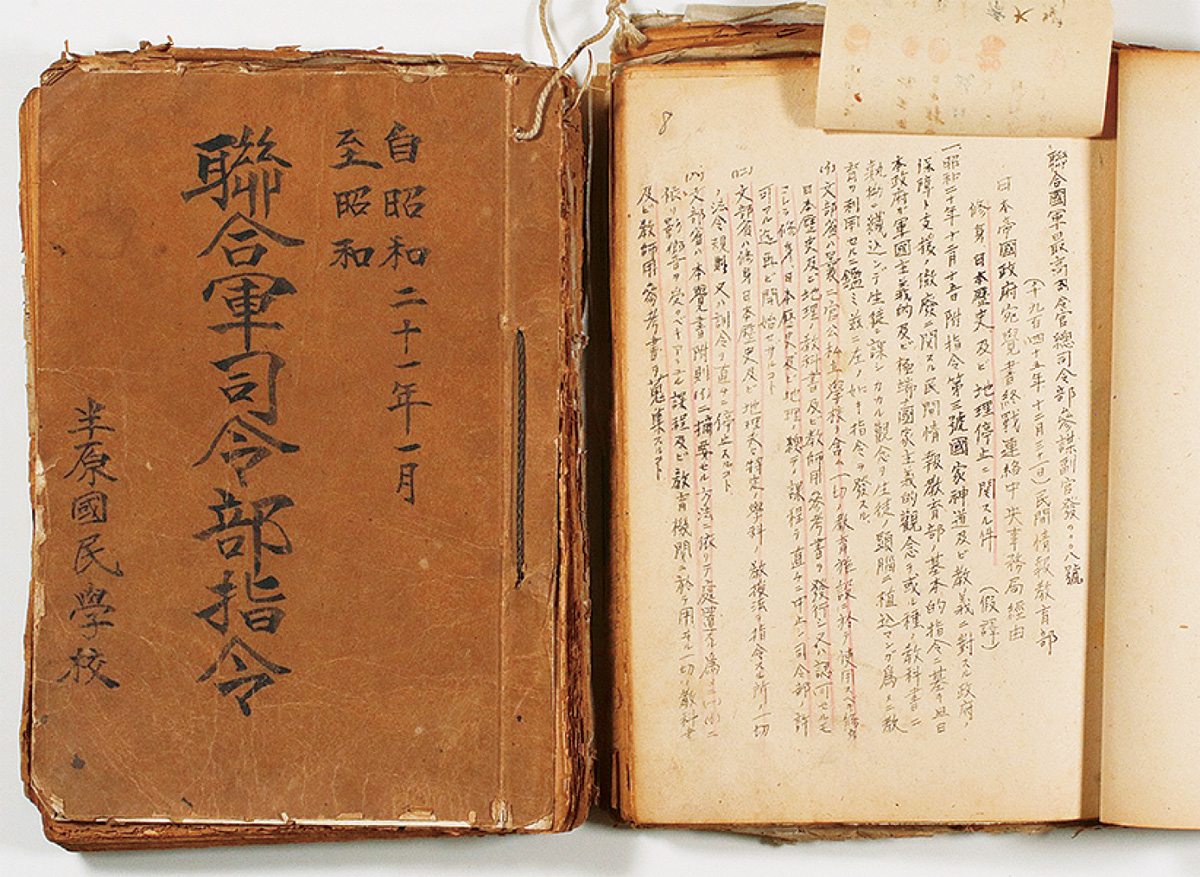 自昭和二十一年一月
至昭和
聯合軍司令部指令
半原國民學校
8
聯合國軍最高司令官總司令部參謀副官發〇〇八號
(千九百四十五年十二月三十一日)民間情報教育部
日本帝國政府宛覺書終戰連絡中央事務局經由
修身日本歷史及ビ地理停止ニ関スル件 (假譯)
一昭和二十年十二月十五日附指令第三號國家神道及ビ教義ニ對スル政府
保障ト支援ノ撤廢ニ関スル民間情報教育部ノ基本的指令ニ基キ且日
本政府ガ軍國主義的及ビ極端ナ國家主義的觀念ヲ或ル種ノ教科書ニ
執拗ニ織込ンデ生徒ニ課シカカル觀念ヲ生徒ノ頭腦ニ植込マンガ為メニ教
育ヲ利用セルニ鑑ミ茲ニ左ノ如キ指令ヲ發スル
(イ)文部省ハ曩ニ官公私立學校ヲ含ム一切ノ教育施設ニ於テ使用スベキ修身
日本歷史及ビ地理ノ教科書及ビ教師用參考書ヲ發行シ又ハ認可セルモ
コレラ修身、日本歷史及ビ地理ノ總テノ課程ヲ直チニ中止シ司令部ノ許
可アル迄再ビ開始セザルコト
(ロ)文部省ハ修身日本歷史及ビ地理夫々特定ノ學科ノ教授法ヲ指令スル所ノ一切
ノ法令、規則又ハ訓令ヲ直チニ停止スルコト
(ハ)文部省ハ本覺書附則(イ)ニ摘要セル方法ニ依リテ處置スル為メニ(一)(イ)ニ
依リ影響ヲ受クベキアラユル課程及ビ教育機關ニ於テ用ヰル一切ノ教科書
及ビ教師用參考書ヲ蒐集スルコト